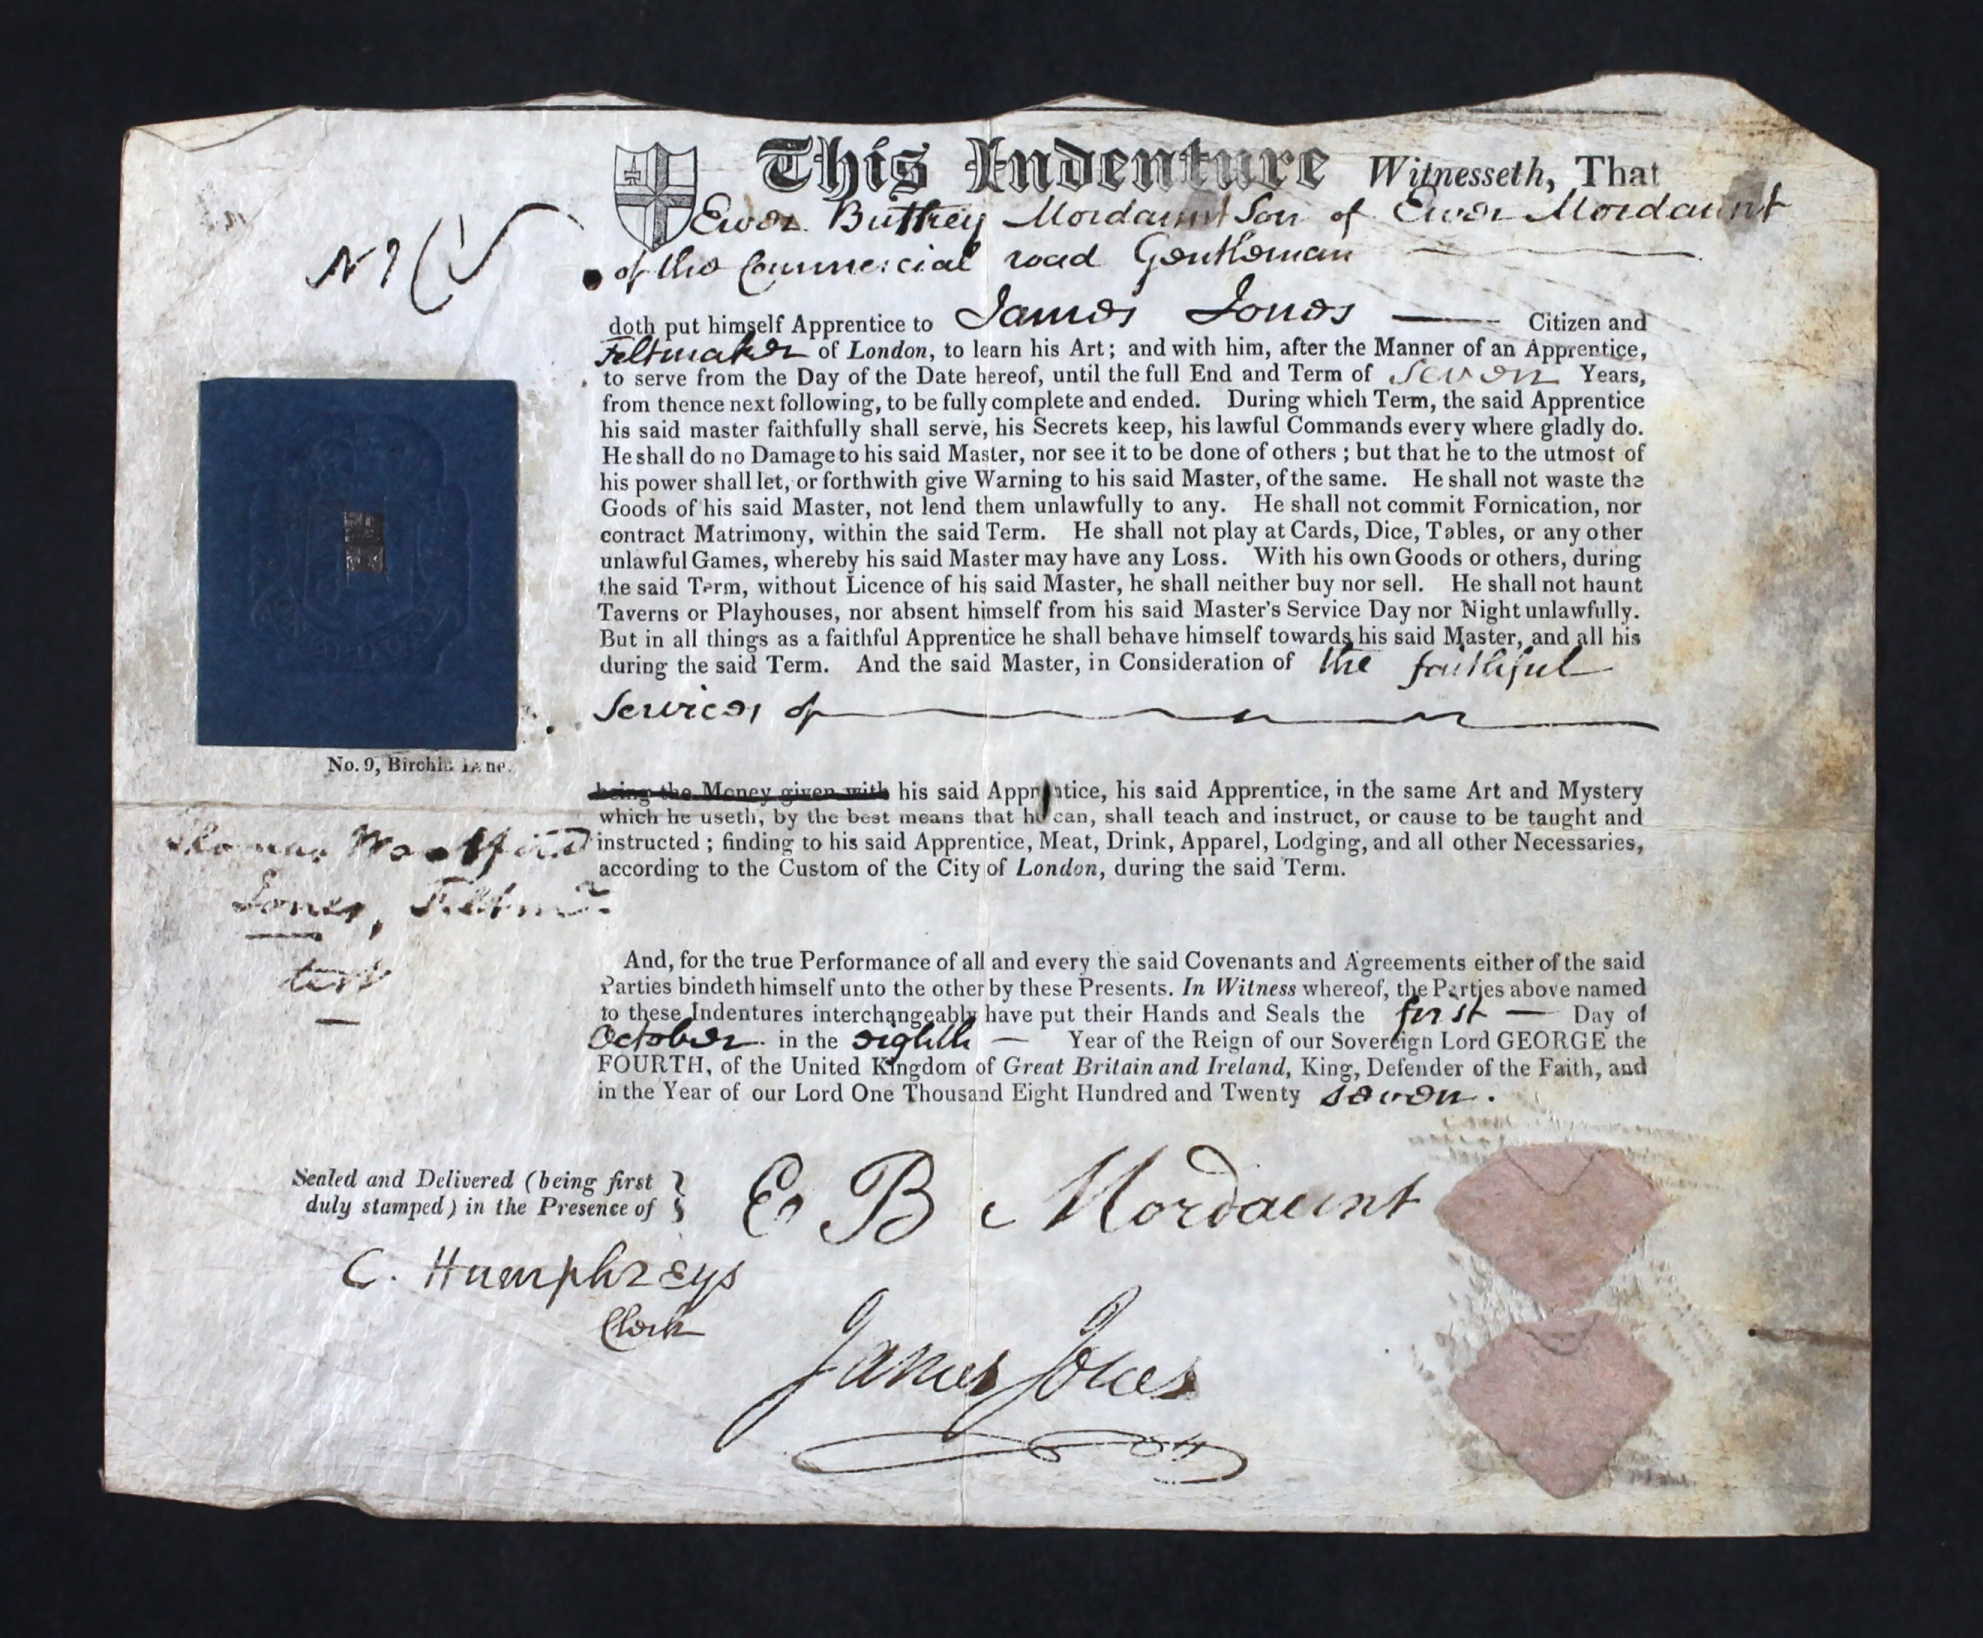 This Indenture Witnesseth, That
Ewer Buttrey Mordaunt Son of Ewer Mordaunt
of the Commercial road Gentleman
doth put himself Apprentice to James Jones Citizen and
Feltmaker of London, to learn his Art; and with him, after the Manner of an Apprentice,
to serve from the Day of the Date hereof, until the full End and Term of Seven Years,
from thence next following, to be fully complete and ended. During which Term, the said Apprentice
his said master faithfully shall serve, his Secrets keep, his lawful Commands every where gladly do.
He shall do no Damage to his said Master, nor see it to be done of others; but that he to the utmost of
his power shall let, or forthwith give Warning to his said Master, of the same. He shall not waste the
Goods of his said Master, not lend them unlawfully to any. He shall not commit Fornication, nor
contract Matrimony, within the said Term. He shall not play at Cards, Dice, Tables, or any other
unlawful Games, whereby his said Master may have any Loss. With his own Goods or others, during
the said Term, without Licence of his said Master, he shall neither buy nor sell. He shall not haunt
Taverns or Playhouses, nor absent himself from his said Master's Service Day nor Night unlawfully.
But in all things as a faithful Apprentice he shall behave himself towards his said Master, and all his
during the said Term. And the said Master, in Consideration of the faithful
Services of
No. 9, Birchin Lane.
being the Money given with his said Apprentice, his said Apprentice, in the same Art and Mystery
which he useth, by the best means that he can, shall teach and instruct, or cause to be taught and
instructed; finding to his said Apprentice, Meat, Drink, Apparel, Lodging, and all other Necessaries,
according to the Custom of the City of London, during the said Term.
Thomas
Jones,
And, for the true Performance of all and every the said Covenants and Agreements either of the said
Parties bindeth himself unto the other by these Presents. In Witness whereof, the Parties above named
to these Indentures interchangeably have put their Hands and Seals the first Day of
October in the eighth Year of the Reign of our Sovereign Lord GEORGE the
FOURTH, of the United Kingdom of Great Britain and Ireland, King, Defender of the Faith, and
in the Year of our Lord One Thousand Eight Hundred and Twenty Seven.
Sealed and Delivered (being first
duly stamped) in the Presence of
E B Mordaunt
C. Humphreys
Clerk
James Jones